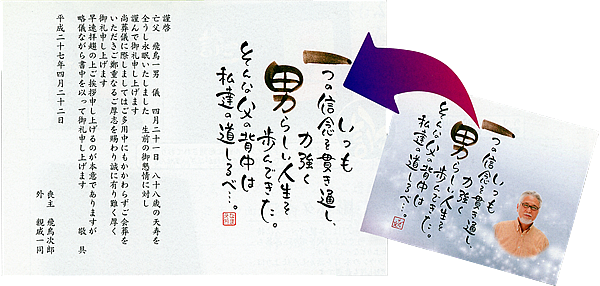 いつも
一つの信念を貫き通し、
力強く
男らしい人生を
歩んできた。
そんな父の背中は
私達の道しるべ…。
謹啓
亡父 飛鳥一男 儀 四月二十一日 八十八歳の天寿を
全うし永眠いたしました 生前の御懇情に対し
謹んで御礼申し上げます
尚葬儀に際しましてはご多用中にもかかわらずご会葬を
いただきご鄭重なるご厚志を賜わり誠に有り難く厚く
御礼申し上げます
早速拝趨の上ご挨拶申し上げるのが本意でありますが
略儀ながら書中を以って御礼申し上げます 敬具
平成二十七年四月二十二日
喪主 飛鳥次郎
外 親戚一同
いつも
一つの信念を貫き通し、
力強く
男らしい人生を
歩んできた。
そんな父の背中は
私達の道しるべ…。